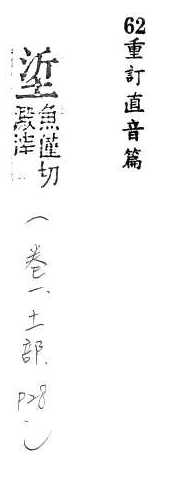 62重訂直音篇
魚僅切
滓
(卷一.土部.P28.)